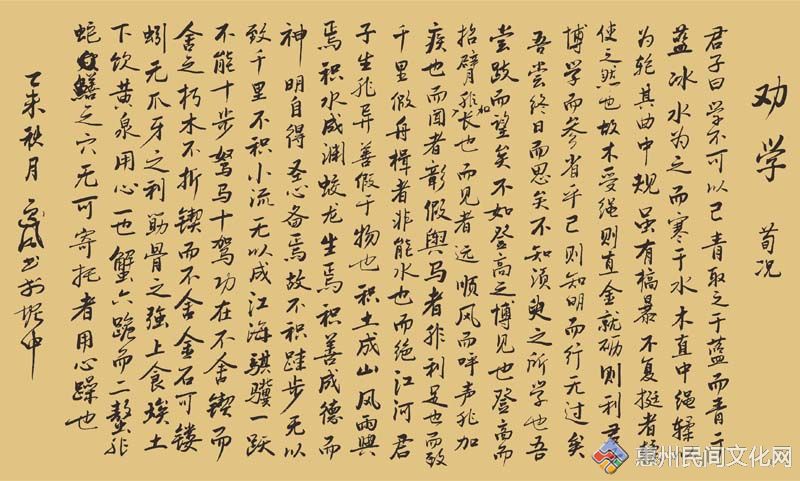 劝学 荀况
君子曰学不可以已青取之于蓝而青于
蓝冰水为之而寒于水木直中绳鞣以
为轮其曲中规虽有槁暴不复挺者鞣
使之然也故木受绳则直金就砺则利君
博学而参省乎己则知明而行无过矣
吾尝终日而思矣不知须臾之所学也吾
尝跂而望矣不如登高之博见也登高而
招臂非加长也而见者远顺风而呼声非加
疾也而闻者彰假舆马者非利足也而致
千里假舟楫者非能水也而绝江河君
子生非异善假于物也积土成山风雨興
焉积水成渊蛟龙生焉积善成德而
神明自得圣心备焉故不积跬步无以
致千里不积小流无以成江海骐骥一跃
不能十步驽马十驾功在不舍锲而
舍之朽木不折锲而不舍金石可镂
蚓无爪牙之利筋骨之强上食埃土
下饮黄泉用心一也蟹六跪而二螯非
蛇鳝之穴无可寄托者用心躁也
乙未秋月
惠州民间文化网